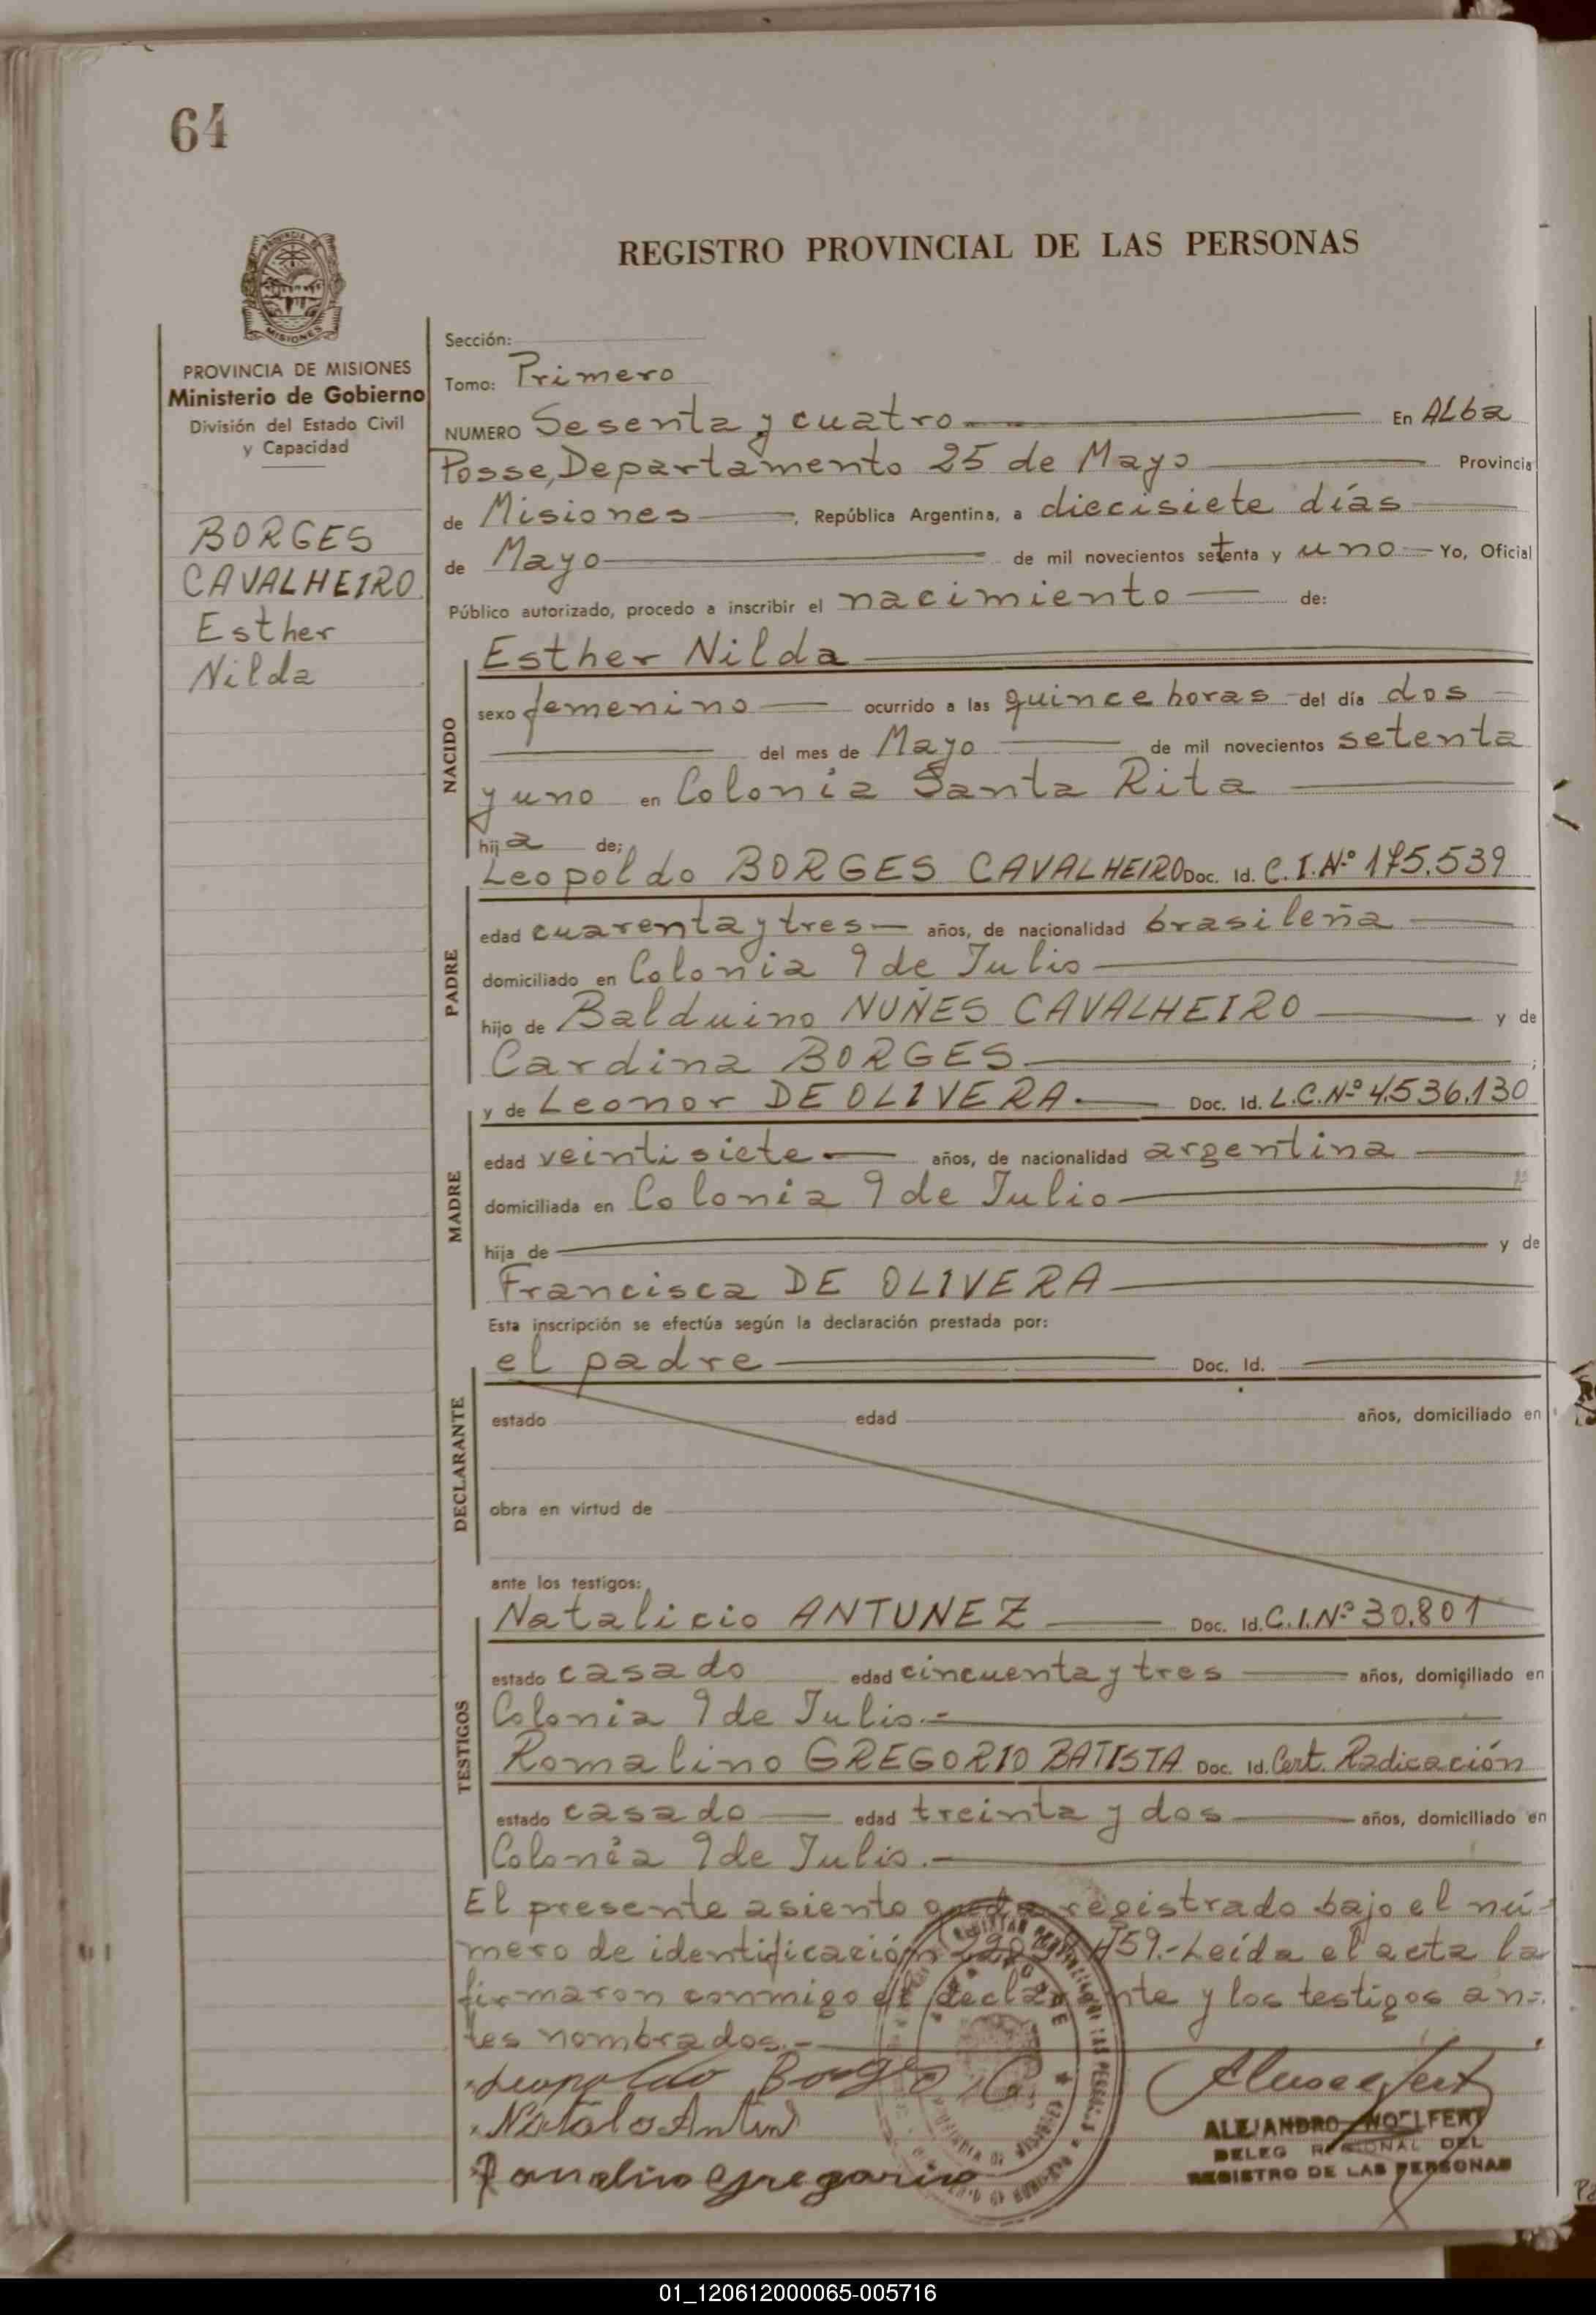 64
REGISTRO PROVINCIAL DE LAS PERSONAS
MISIONES
PROVINCIA DE MISIONES
Ministerio de Gobierno
División del Estado Civil
y Capacidad
BORGES
CAVALHEIRO
Esther
Nilda
Sección:
Tomo: Primero
NUMERO Sesenta y cuatro En Alba
Posse, Departamento 25 de Mayo Provincia
de Misiones, República Argentina, a diecisiete días
de Mayo de mil novecientos setenta y uno Yo, Oficial
Público autorizado, procedo a inscribir el nacimiento de:
NACIDO
Esther Nilda
sexo femenino ocurrido a las quince horas del día dos
del mes de Mayo de mil novecientos setenta
y uno en Colonia Santa Rita
hija de;
PADRE
Leopoldo BORGES CAVALHEIRO Doc. Id. C.I.Nº 175.539
edad cuarenta y tres años, de nacionalidad brasileña
domiciliado en Colonia 9 de Julio
hijo de Balduino NUÑES CAVALHEIRO y de
Cardina BORGES ;
MADRE
y de Leonor DE OLIVERA Doc. Id. L.C.Nº 4.536.130
edad veintisiete años, de nacionalidad argentina
domiciliada en Colonia 9 de Julio
hija de y de
Francisca DE OLIVERA
Esta inscripción se efectúa según la declaración prestada por:
DECLARANTE
el padre Doc. Id.
estado edad años, domiciliado en
obra en virtud de
ante los testigos:
TESTIGOS
Natalicio ANTUNEZ Doc. Id. C.I.Nº 30.801
estado casado edad cincuenta y tres años, domiciliado en
Colonia 9 de Julio.-
Romalino GREGORIO BATISTA Doc. Id. Cert. Radicación
estado casado edad treinta y dos años, domiciliado en
Colonia 9 de Julio.-
El presente asiento queda registrado bajo el nú-
mero de identificación 159.- Leída el acta la
firmaron conmigo el declarante y los testigos an-
tes nombrados.-
Leopoldo Borges
ALEJANDRO WOELFERT
DELEG REGIONAL DEL
REGISTRO DE LAS PERSONAS
01_120612000065-005716